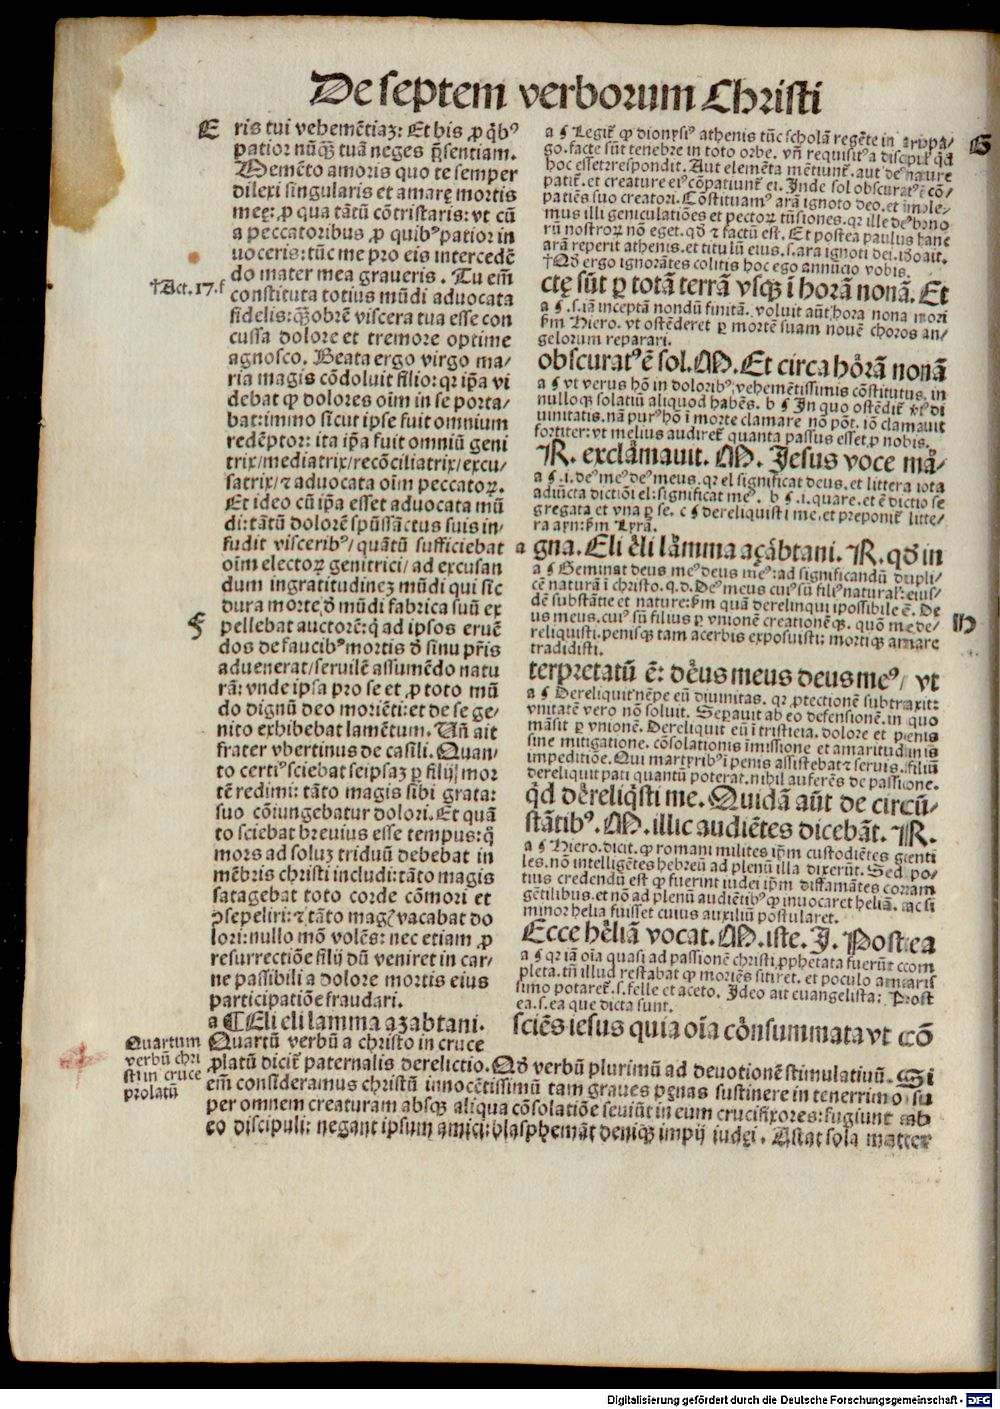 De septem verborum Christi
E
ris tui vehemētiaꝫ: Et his ꝓ qͥbꝰ
patior nūqͣꝫ tuā neges p̄sentiam.
Memēto amoris quo te semper
dilexi singularis et amarę mortis
meę: ꝓ qua tātū cōtristaris: vt cū
a peccatoribus ꝓ quibꝰ patior in
uoceris: tūc me pro eis intercedē
do mater mea graueris. Tu em̄
†Act. 17. f
constituta totius mūdi aduocata
fidelis: qͣꝫobrē viscera tua esse con
cussa dolore et tremore optime
agnosco. Beata ergo virgo ma/
ria magis cōdoluit filio: qꝛ ip̄a vi
debat ꝙ dolores oīm in se porta/
bat: immo sicut ipse fuit omnium
redēptor: ita ip̄a fuit omniū geni
trix/mediatrix/recōciliatrix/excu/
satrix/⁊ aduocata oīm peccatoꝝ.
Et ideo cū ip̄a esset aduocata mū
di: tātū dolorē spūssāctus suis in/
fudit visceribꝰ/ quātū sufficiebat
oīm electoꝝ genitrici/ ad excusan
dum ingratitudineꝫ mūdi qui sic
dura morte d̄ mūdi fabrica suū ex
f
pellebat auctorē: q̄ ad ipsos eruē
dos de faucibꝰ mortis d̄ sinu pr̄is
aduenerat/ seruilē assumēdo natu
rā: vnde ipsa pro se et ꝓ toto mū
do dignū deo moriēti: et de se ge/
nito exhibebat lamētum. Vn̄ ait
frater vbertinus de casili. Quan/
to certiꝰ sciebat seipsaꝫ ꝑ filij mor
tē redimi: tāto magis sibi grata:
suo cōiungebatur dolori. Et quā
to sciebat breuius esse tempus: q̄
mors ad soluꝫ triduū debebat in
mēbris christi includi: tāto magis
satagebat toto corde cōmori et
ꝯsepeliri: ⁊ tāto magꝭ vacabat do
lori: nullo mō volēs: nec etiam ꝓ
resurrectiōe filij dū veniret in car/
ne passibili a dolore mortis eius
participatiōe fraudari.
a ¶ Eli eli lamma azabtani.
Quartum
verbū chri
sti in cruce
prolatū
Quartū verbū a christo in cruce
ꝓlatū dicit̄ paternalis derelictio. Qd̄ verbū plurimū ad deuotionē stimulatiuū. Si
em̄ consideramus christū innocētissimū tam graues pęnas sustinere in tenerrimo su
per omnem creaturam absqꝫ aliqua cōsolatiōe seuiūt in eum crucifixores: fugiunt ab
eo discipuli: negant ipsum amici: blasphemāt deniqꝫ impij iudęi. Astat sola matter
G
a ¶ Legit̄ ꝙ dionysiꝰ athenis tūc scholā regēte in ariopa/
go. facte sūt tenebre in toto orbe. vn̄ requisitꝰ a discipul̓ qd̄
hoc esset: respondit. Aut elemēta mētiunt̄. aut deꝰ nature
patit̄. et creature eiꝰ cōpatiunt̄ ei. Inde sol obscuratꝰ ē cō/
patiēs suo creatori. Cōstituamꝰ arā ignoto deo. et imole/
mus illi geniculatiōes et pectoꝝ tūsiones. qꝛ ille de bono
rū nostroꝝ nō eget. qd̄ ⁊ factū est. Et postea paulus hanc
arā reperit athenis. et titulū eius. s. ara ignoti dei. idoait.
†Qd̄ ergo ignorātes colitis hoc ego annūcio vobis.
ctę sūt ꝑ totā terrā vsqꝫ ī horā nonā. Et
a ¶ .s. iā inceptā nondū finitā. voluit aūt hora nona mori
ẜm Hiero. vt ostēderet ꝑ mortē suam nouē choros an/
gelorum reparari.
obscuratꝰ ē sol. M. Et circa horā nonā
a ¶ vt verus hō in doloribꝰ vehemētissimis cōstitutus. in
nulloqꝫ solatiū aliquod habēs. b ¶ In quo ostēdit̄ xͥpꝰ di
uinitatis. nā purꝰ hō ī morte clamare nō pōt. iō clamauit
fortiter: vt melius audiret̄ quanta passus esset ꝓ nobis.
R. exclamauit. M. Jesus voce mā/
a ¶ .i. deꝰ meꝰ deꝰ meus. qꝛ el significat deus. et littera iota
adiūcta dictiōi el: significat meꝰ. b ¶ .i. quare. et ē dictio se
gregata et vna ꝑ se. c ¶ dereliquisti me. et preponit̄ litte/
ra ayn: ẜm Lyrā.
a gna. Eli eli lamma açabtani. R. qd̄ in
a ¶ Geminat deus meꝰ deus meꝰ: ad significandū dupli/
cē naturā ī christo. q. d. Deꝰ meus cuiꝰ sū filiꝰ natural̓: eius/
dē substātie et nature: ẜm quā derelinqui ipossibile ē. De
H
us meus. cuiꝰ sū filius ꝑ vnionē creationēqꝫ. quō me de/
reliquisti. penisqꝫ tam acerbis exposuisti: mortiqꝫ amare
tradidisti.
terpretatū ē: deus meus deus meꝰ/ vt
a ¶ Dereliquit nēpe eū diuinitas. qꝛ ꝓtectionē subtraxit:
vnitatē vero nō soluit. Separauit ab eo defensionē. in quo
māsit ꝑ vnionē. Dereliquit eū ī tristicia. dolore et penis
sine mitigatione. cōsolationis īmissione et amaritudinis
impeditiōe. Qui martyribꝰ ī penis assistebat ⁊ seruis. filiū
dereliquit pati quantū poterat. nihil auferēs de passione.
qd̄ dereliqͥsti me. Quidā aūt de circū/
stātibꝰ. M. illic audiētes dicebāt. R.
a ¶ Hiero. dicit. ꝙ romani milites ip̄m custodiētes genti
les. nō intelligētes hebreū ad plenū illa dixerūt. Sed po/
tius credendū est ꝙ fuerint iudei ip̄m diffamātes corram
gētilibus. et nō ad plenū audiētibꝰ ꝙ inuocaret heliā. ac si
minor helia fuisset cuius auxiliū postularet.
Ecce heliā vocat. M. iste. J. Postea
a ¶ qꝛ iā oīa quasi ad passionē christi ꝓphetata fuerūt com
pleta. tn̄ illud restabat ꝙ moriēs sitiret. et poculo amaris
simo potaret̄. s. felle et aceto. Ideo ait euangelista: Post
ea. s. ea que dicta sunt.
sciēs iesus quia oīa consummata vt cō
Digitalisierung gefördert durch die Deutsche Forschungsgemeinschaft - DFG